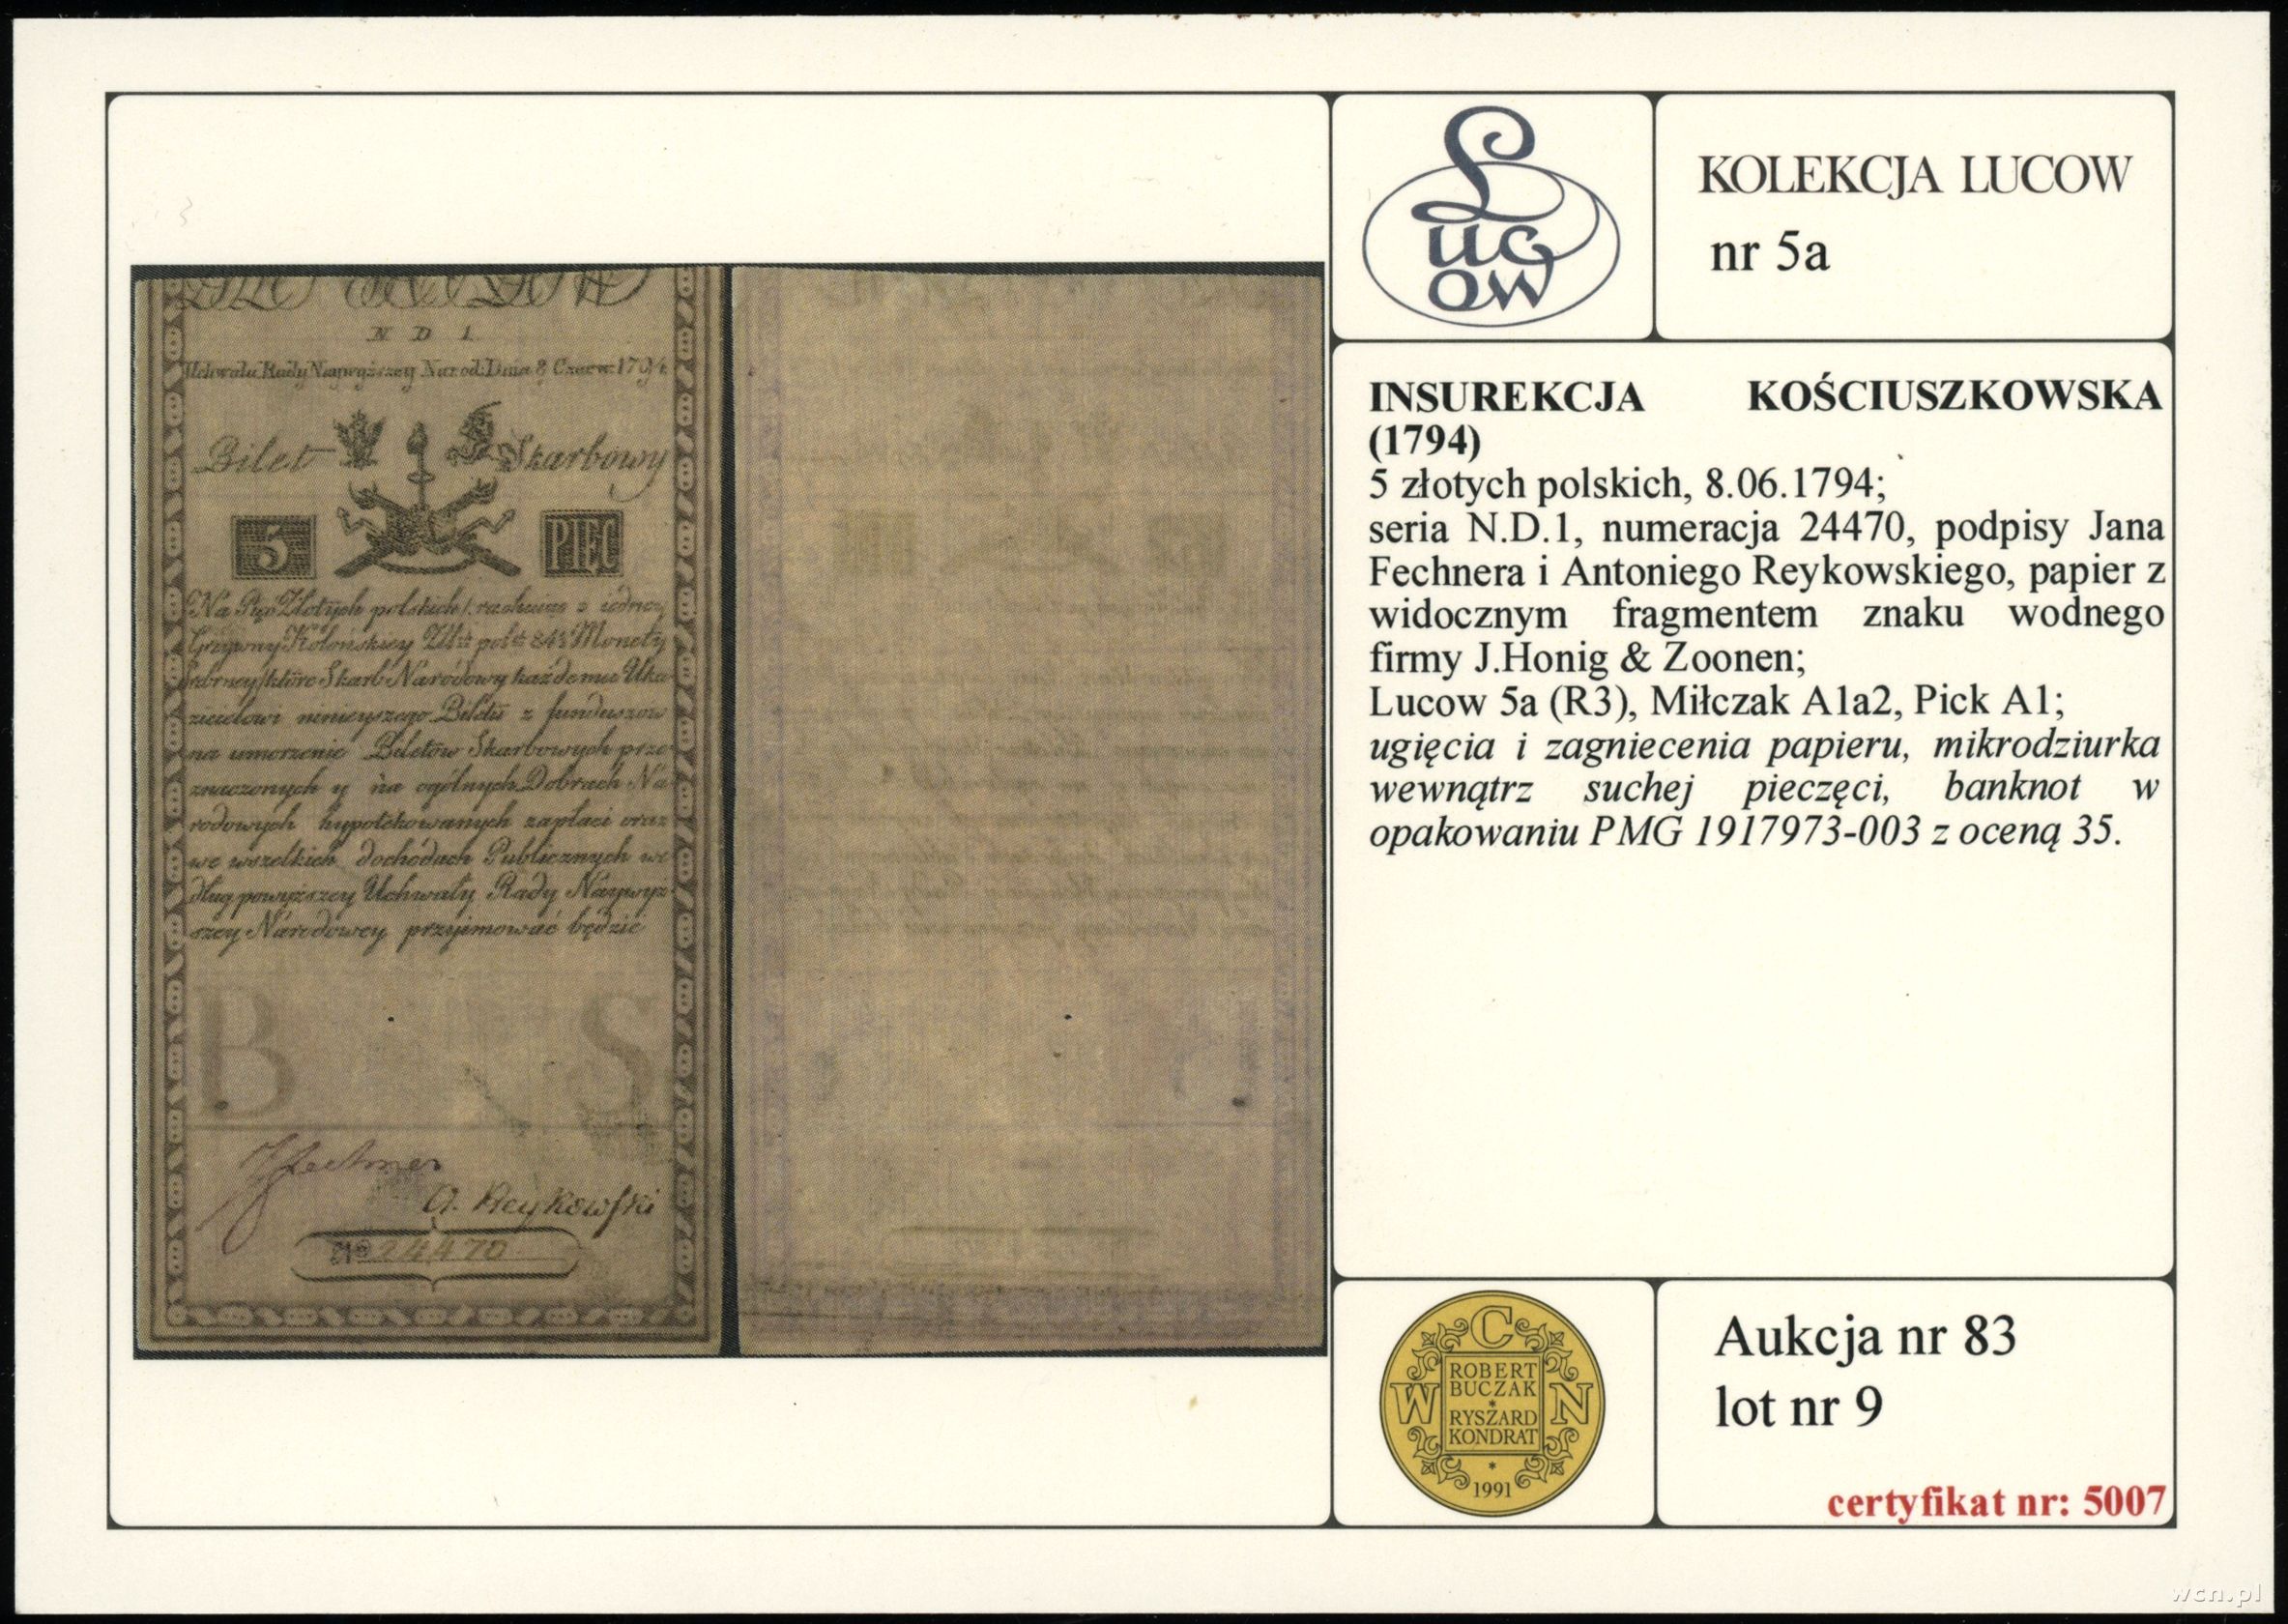 N D 1
Uchwała Rady Naywyższey Narod: Dnia 8 Czerw: 1794.
Bilet Skarbowy
5 PIĘC
Na Pięc Złotych polskich
Grzywny Kolońskiey Monety
które Skarb Narodowy każdemu Uka-
zicielowi ninieyszego Biletu z funduszow
na umorzenie Biletów Skarbowych prze-
znaczonych y na ogólnych Dobrach Na-
rodowych hypotekowanych zapłaci oraz
we wszelkich dochodach Publicznych we-
dług powyższey Uchwały Rady Naywyż-
szey Narodowey przyimować będzie
B S
JFechner
A. Reykowski
No 24470
Lucow
KOLEKCJA LUCOW
nr 5a
INSUREKCJA KOŚCIUSZKOWSKA
(1794)
5 złotych polskich, 8.06.1794;
seria N.D.1, numeracja 24470, podpisy Jana
Fechnera i Antoniego Reykowskiego, papier z
widocznym fragmentem znaku wodnego
firmy J.Honig & Zoonen;
Lucow 5a (R3), Miłczak A1a2, Pick A1;
ugięcia i zagniecenia papieru, mikrodziurka
wewnątrz suchej pieczęci, banknot w
opakowaniu PMG 1917973-003 z oceną 35.
C
W N
ROBERT
BUCZAK
*
RYSZARD
KONDRAT
*
1991
Aukcja nr 83
lot nr 9
certyfikat nr: 5007
wcn.pl